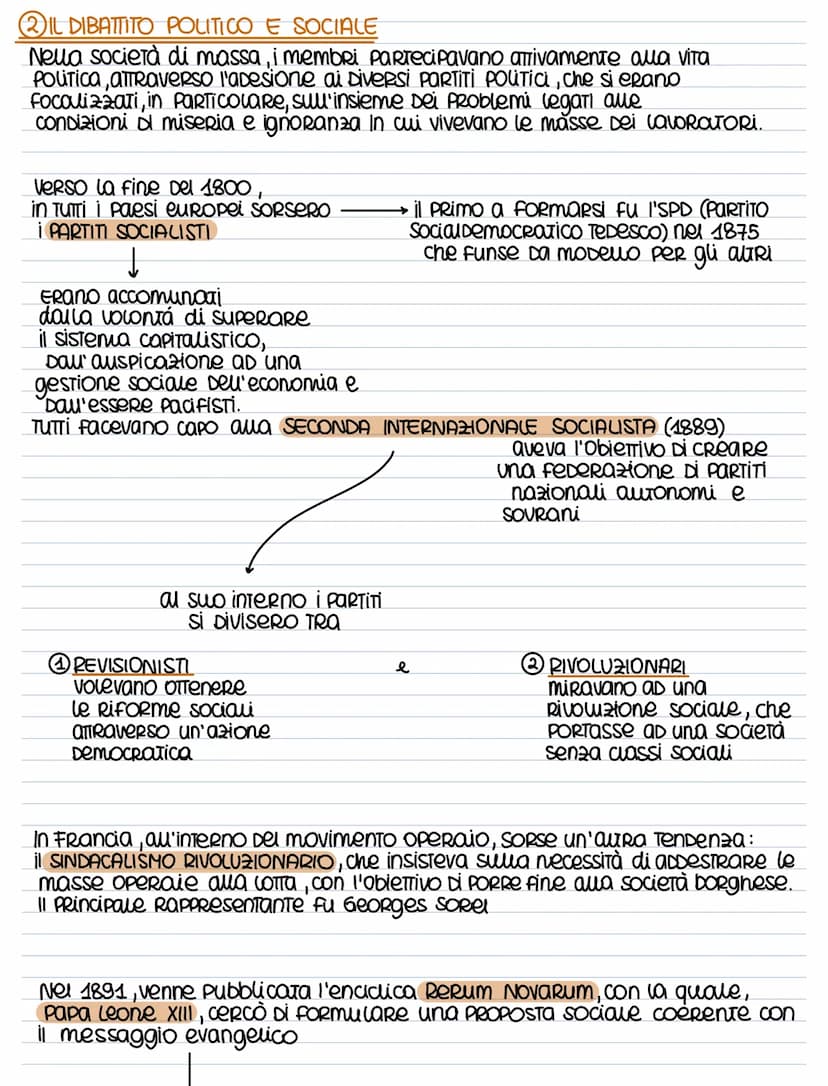 ② IL DIBATTITO POLITICO E SOCIALE
Nella società di massa, i membri partecipavano attivamente alla vita
politica, attraverso l'adesione ai diversi partiti politici, che si erano
focalizzati, in particolare, sull'insieme dei problemi legati alle
condizioni di miseria e ignoranza in cui vivevano le masse dei lavoratori.
Verso la fine del 1800,
in tutti i paesi europei sorsero → il primo a formarsi fu l'SPD (partito
i PARTITI SOCIALISTI
socialdemocratico tedesco) nel 1875
che funse da modello per gli altri
Erano accomunati
dalla volontá di superare
il sistema capitalistico,
dall'auspicazione ad una
gestione sociale dell'economia e
dall'essere pacifisti.
Tutti facevano capo alla SECONDA INTERNAZIONALE SOCIALISTA (1889)
aveva l'obiettivo di creare
una federazione di partiti
nazionali autonomi e
sovrani
al suo interno i partiti
si divisero tra
① REVISIONISTI e ② RIVOLUZIONARI
volevano ottenere
le riforme sociali
attraverso un'azione
democratica
miravano ad una
rivoluzione sociale, che
portasse ad una società
senza classi sociali
In Francia, all'interno del movimento operaio, sorse un'altra tendenza:
il SINDACALISMO RIVOLUZIONARIO, che insisteva sulla necessità di addestrare le
masse operaie alla lotta, con l'obiettivo di porre fine alla società borghese.
Il principale rappresentante fu Georges Sorel
Nel 1891, venne pubblicata l'enciclica RERUM NOVARUM, con la quale,
PAPA LEONE XIII, cercò di formulare una proposta sociale coerente con
il messaggio evangelico